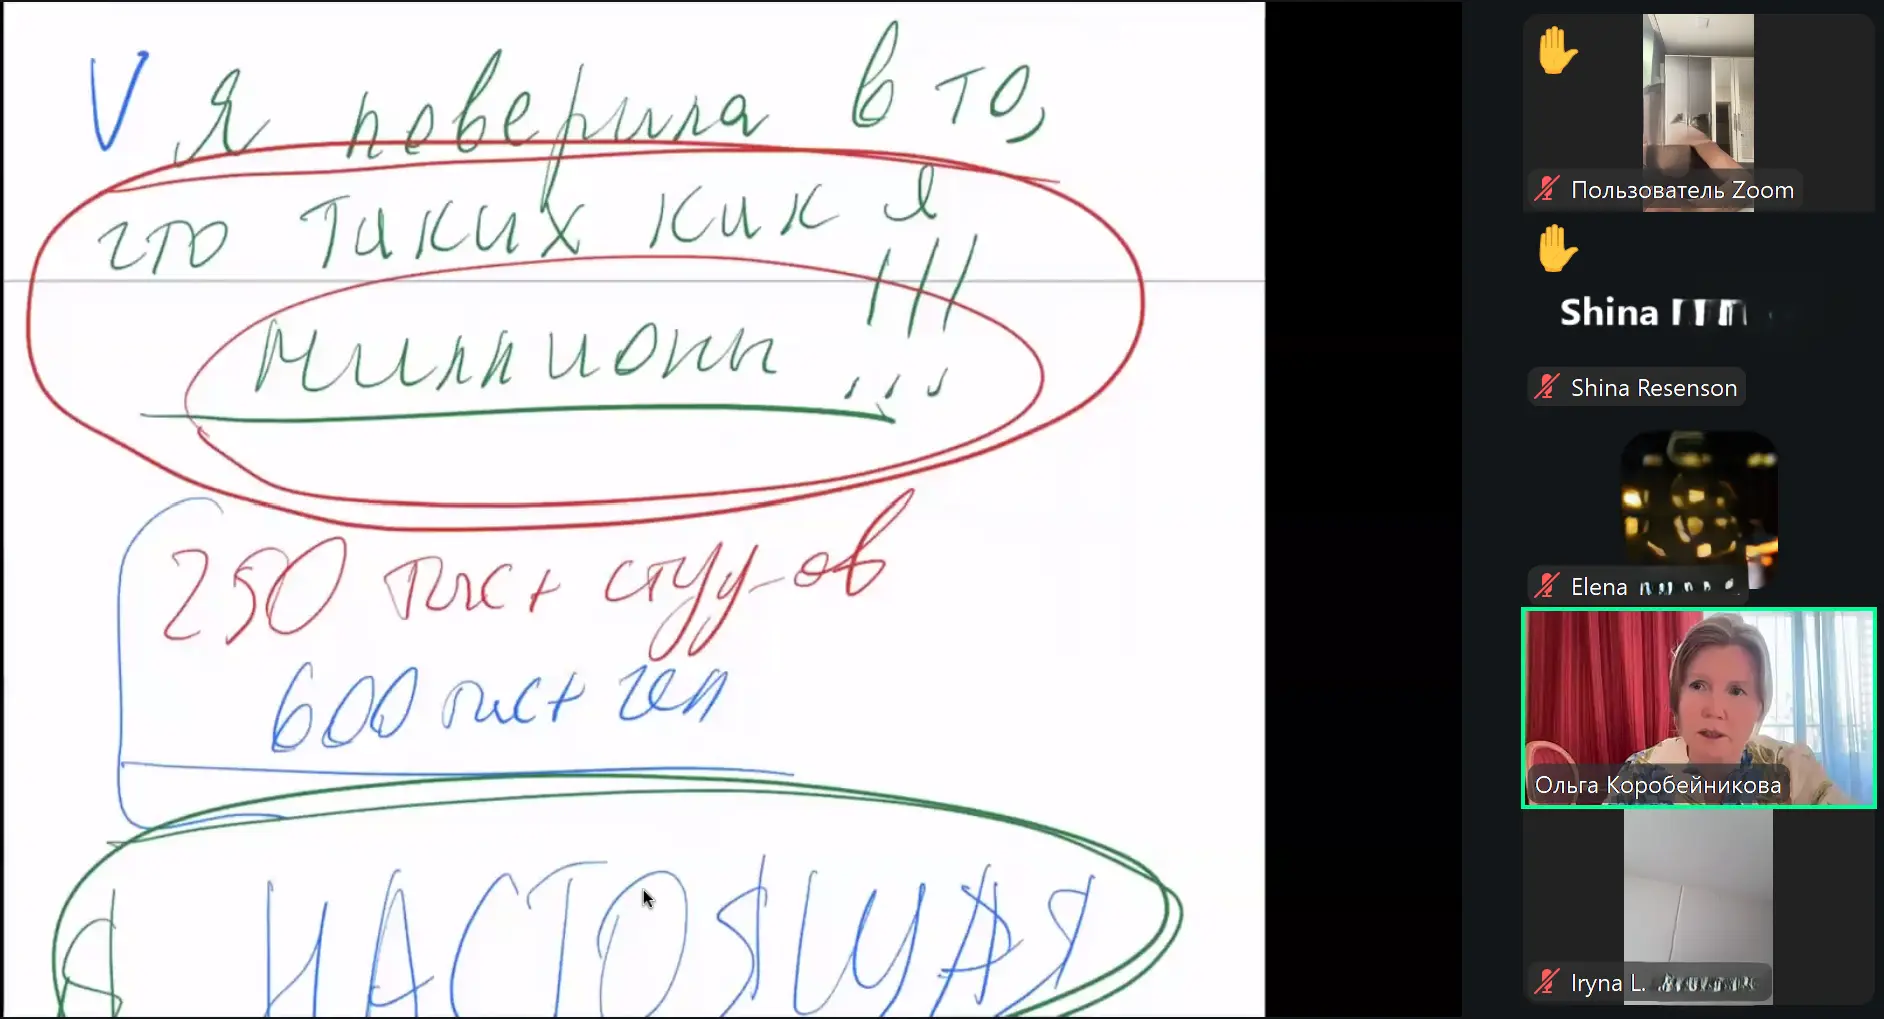 V Я поверила в то,
что таких как я
миллионы !!!
250 тыс+ студ-ов
600 тыс+ чел
Я НАСТОЯЩАЯ
Пользователь Zoom
Shina
Shina Resenson
Elena
Ольга Коробейникова
Iryna L.